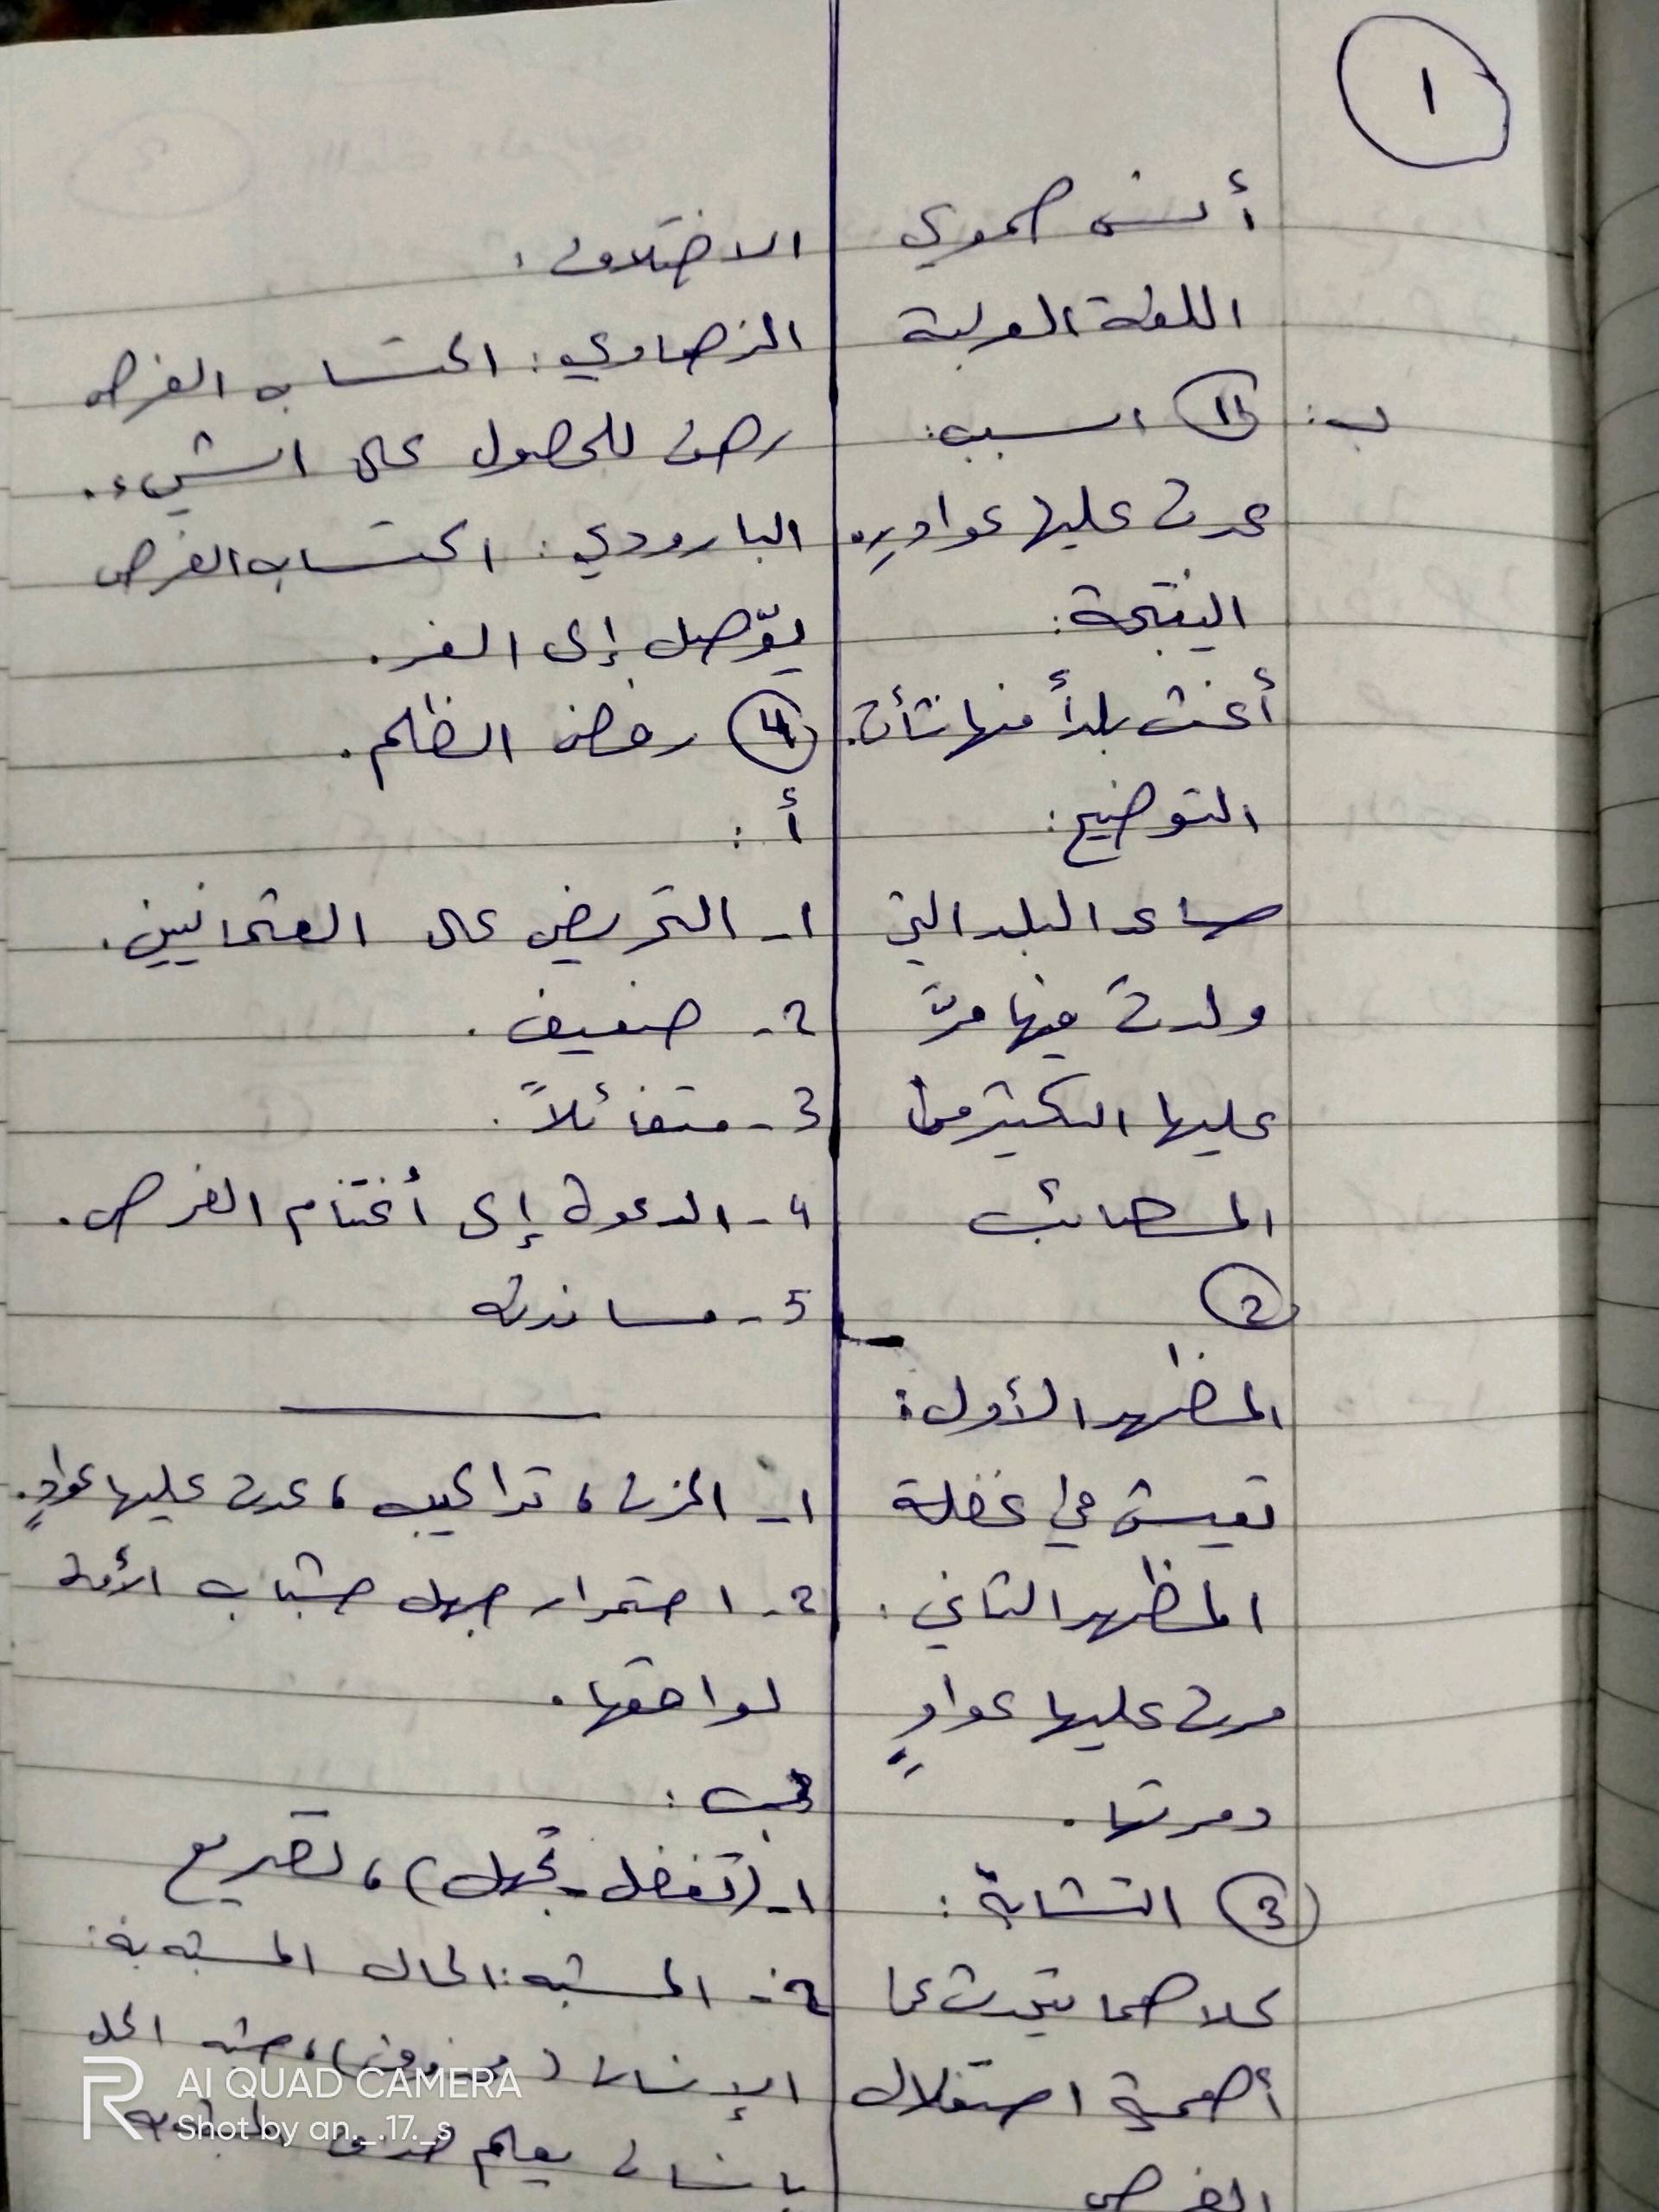 ١
أنس حموي
اللغة العربية
ب: 1) السبب:
عدت عليها عوادٍ.
النتيجة:
أغث بلداً منها نشأت.
التوضيح:
ساعد البلد التي
ولدت فيها مرّت
عليها الكثير من
المصائب
2
المظهر الأول:
تعيش في غفلة
المظهر الثاني:
مرت عليها عوادٍ
دمرتها.
3 التشابه:
كلاهما يتحدث عن
أهمية استغلال
الفرص
الاختلاف:
الزهاوي: اكتساب الفرص
رهن للحصول على الشيء.
البارودي: اكتساب الفرص
يوّصل إلى
4 رفض الظلم.
أ:
1- التحريض على العثمانيين.
2- ضعيف.
3- متفائلاً.
4- الدعوة إلى أغتنام الفرص.
5- مساندته
1- الحزن، تراكيب، عدت عليها عوادٍ.
2- استمرار جهل شباب الأمة
لواقعها.
ب:
1- (تغفل - تجهل)، تصريع
2- المشبه: الحال المشبه به:
الإنسان (محذوف)، شبه الحال
بإنسان يعلم
AI QUAD CAMERA
Shot by an._.17._s